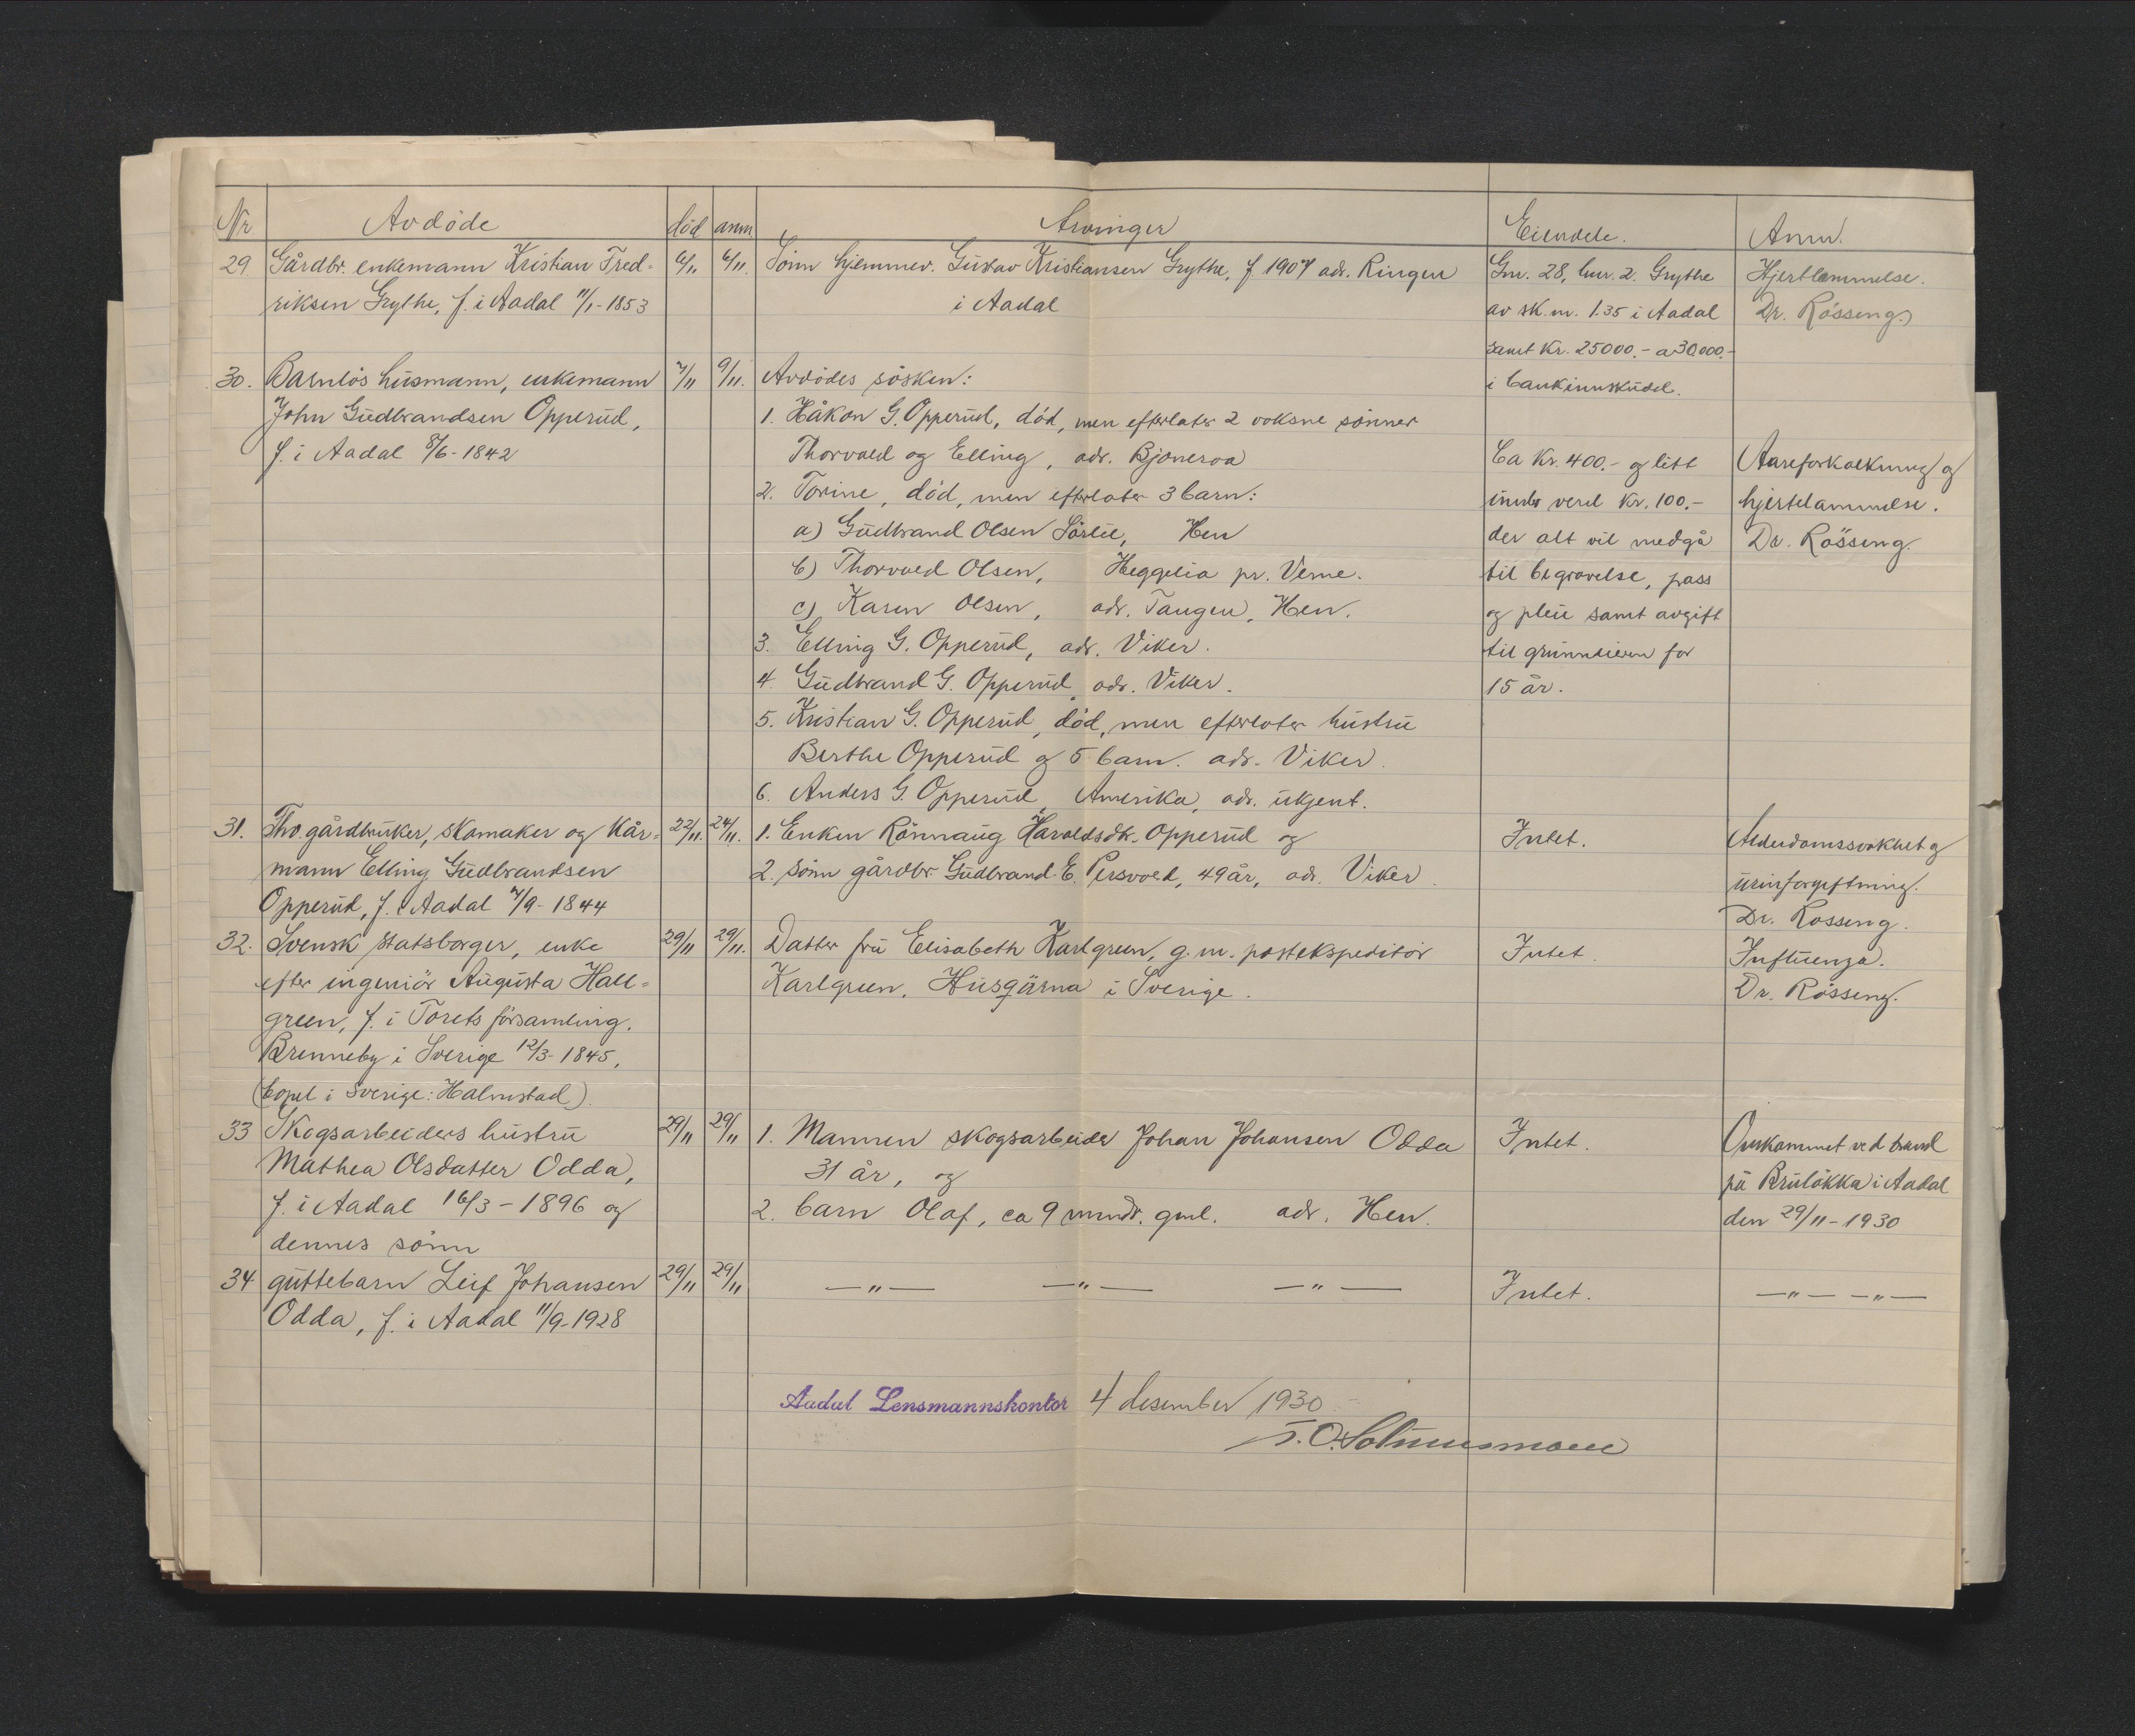 Nr. Avdöde död anm. Arvinger Eiendele. Anm.
29. Gårdbr. enkemann Kristian Fred- 6/11 6/11. Sönn hjemmev. Gustav Kristiansen Grythe, f. 1907 adr. Ringen Gnr. 28, bnr. 2. Grythe Hjertlammelse.
riksen Grythe, f. i Aadal 11/1-1853 i Aadal av sk.m. 1.35 i Aadal Dr. Rösseng.
samt Kr. 25000.- a 30.000.-
30. Barnlös husmann, enkemann 7/11 9/11. Avdödes sösken: i bankinnskudd.
John Gudbrandsen Opperud, 1. Håkon G. Opperud, död, men efterlater 2 voksne sönner
f. i Aadal 8/6-1842 Thorvald og Elling, adr. Bjoneroa Ca Kr. 400.- og litt Aareforkalkning og
2. Torine, död, men efterlater 3 barn: innbo verd Kr. 100.- hjertelammelse.
a) Gudbrand Olsen Sörlie, Hen der alt vil medgå Dr. Rösseng.
b) Thorvald Olsen, Heggelia pr. Verne. til begravelse, pass
c) Karen Olsen, adr. Tangen, Hen. og pleie samt avgift
3. Elling G. Opperud, adr. Viker. til grunneieren for
4. Gudbrand G. Opperud, adr. Viker. 15 år.
5. Kristian G. Opperud, död, men efterlater hustru
Berthe Opperud og 5 barn. adr. Viker.
6. Anders G. Opperud, Amerika, adr. ukjent.
31. Fhv. gårdbruker, skomaker og kår- 22/11. 24/11. 1. Enken Rönnaug Haraldsdtr. Opperud og Intet. Alderdomssvakhet og
mann Elling Gudbrandsen 2. sönn gårdbr. Gudbrand E. Persvold, 49 år, adr. Viker. urinforgiftning.
Opperud, f. i Aadal 7/9-1844 Dr. Rosseng.
32. Svensk statsborger, enke 29/11 29/11. Datter fru Elisabeth Karlgreen, g.m. postekspeditör Intet. Influenza.
efter ingeniör Augusta Hall- Karlgreen, Husqärna i Sverige. Dr. Rösseng.
green, f. i Torets församling.
Brenneby i Sverige 12/3-1845,
(bopel i Sverige: Halmstad).
33 Skogsarbeiders hustru 29/11 29/11 1. Mannen skogsarbeider Johan Johansen Odda Intet. Omkommet ved brand
Mathea Olsdatter Odda, 31 år, og på Brulökka i Aadal
f. i Aadal 16/3-1896 og 2. barn Olaf, ca 9 mndr. gml. adr. Hen. den 29/11-1930
dennes sönn
34 guttebarn Leif Johansen 29/11 29/11 —"— —"— —"— Intet. —"— —"—
Odda, f. i Aadal 11/9-1928
Aadal Lensmannskontor 4 desember 1930